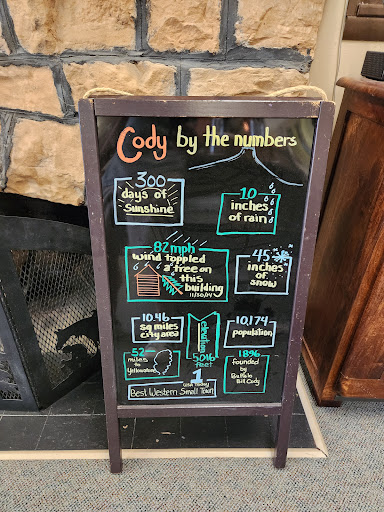 Cody by the numbers
300
days of
Sunshine
10
inches
of rain
82mph
wind toppled
a tree on
this
building
11/30/04
45
inches
of
snow
10.46
sq miles
city area
elevation
5016
feet
10,174
population
52
miles
to
Yellowstone
1896
founded
by Buffalo
Bill Cody
1
USA Today
Best Western Small Town